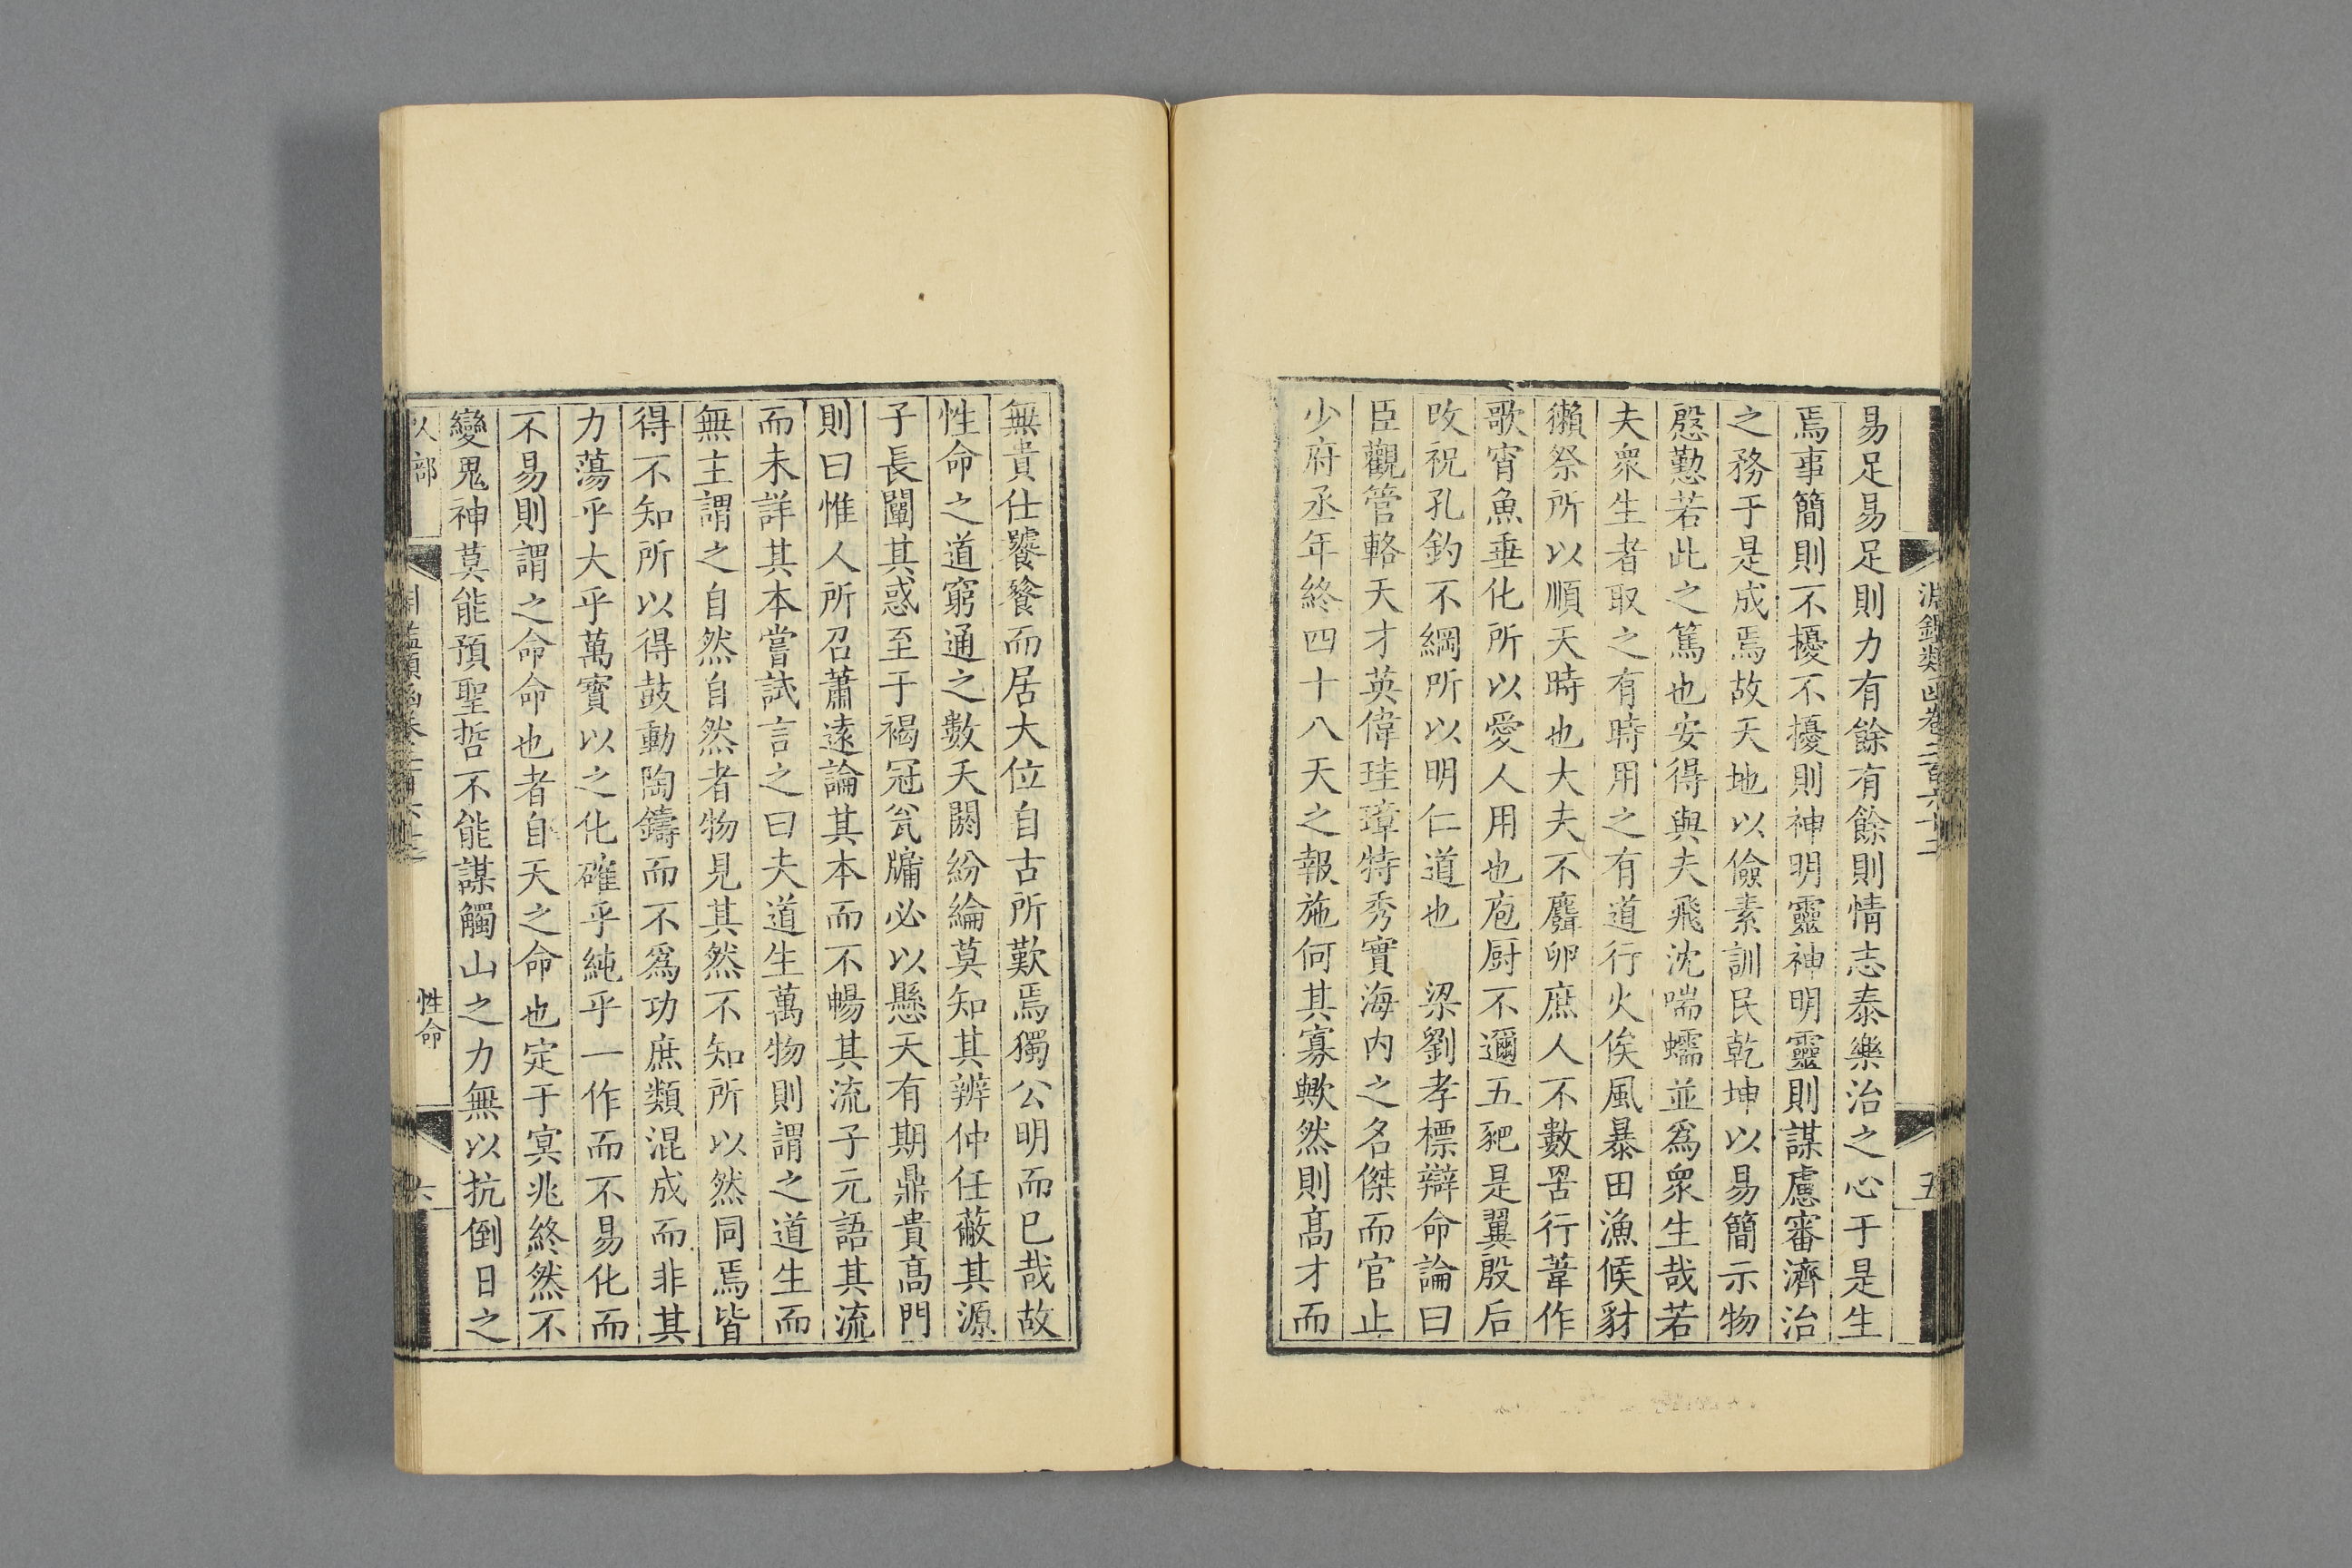 易足易足則力有餘有餘則情志泰樂治之心于是生
焉事簡則不擾不擾則神明靈神明靈則謀慮審濟治
之務于是成焉故天地以儉素訓民乾坤以易簡示物
慇懃若此之篤也安得與夫飛沈喘蠕並爲衆生哉若
夫衆生者取之有時用之有道行火俟風暴田漁候豺
獺祭所以順天時也大夫不麛卵庶人不數罟行葦作
歌宵魚垂化所以愛人用也庖厨不邇五豝是翼殷后
改祝孔釣不綱所以明仁道也　梁劉孝標辯命論曰
臣觀管輅天才英偉珪璋特秀實海内之名傑而官止
少府丞年終四十八天之報施何其寡歟然則高才而
五
無貴仕饕餮而居大位自古所歎焉獨公明而已哉故
性命之道窮通之數夭閼紛綸莫知其辨仲任蔽其源
子長闡其惑至于褐冠瓮牖必以懸天有期鼎貴高門
則曰惟人所召蕭遠論其本而不暢其流子元語其流
而未詳其本嘗試言之曰夫道生萬物則謂之道生而
無主謂之自然自然者物見其然不知所以然同焉皆
得不知所以得鼓動陶鑄而不爲功庶類混成而非其
力蕩乎大乎萬寳以之化確乎純乎一作而不易化而
不易則謂之命命也者自天之命也定于冥兆終然不
變鬼神莫能預聖哲不能謀觸山之力無以抗倒日之
人部
性命
六